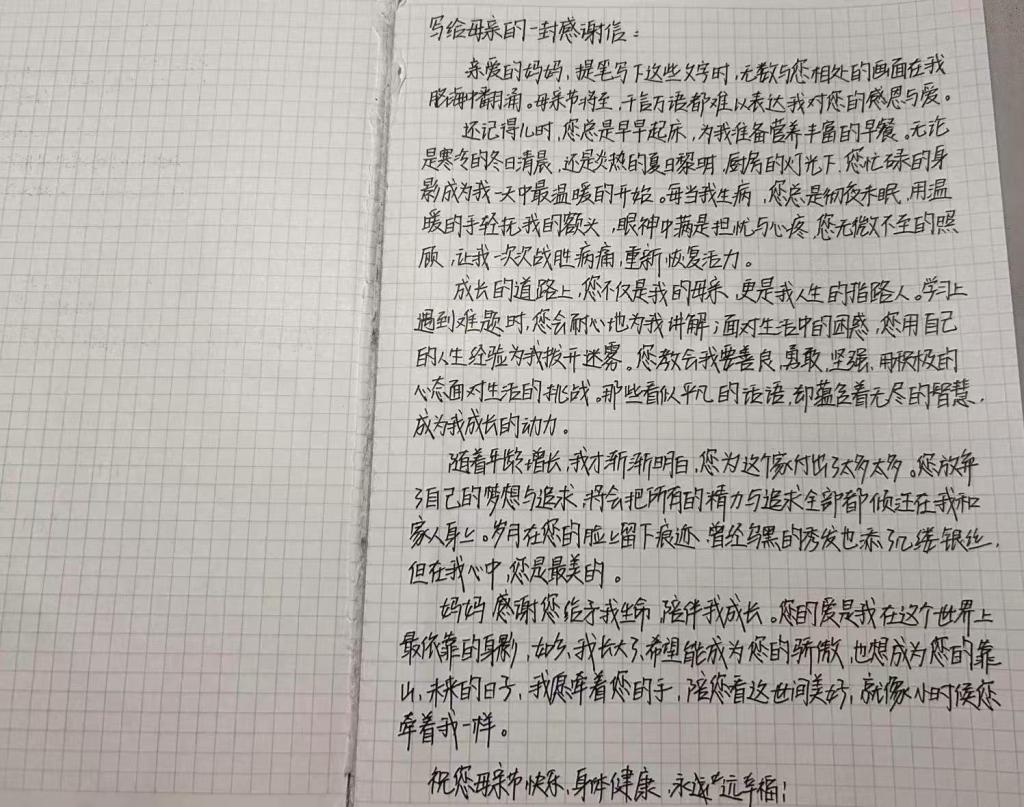 写给母亲的一封感谢信：
亲爱的妈妈，提笔写下这些文字时，无数与您相处的画面在我
脑海中翻涌。母亲节将至，千言万语都难以表达我对您的感恩与爱。
还记得儿时，您总是早早起床，为我准备营养丰富的早餐。无论
是寒冷的冬日清晨，还是炎热的夏日黎明，厨房的灯光下，您忙碌的身
影成为我一天中最温暖的开始。每当我生病，您总是彻夜未眠，用温
暖的手轻抚我的额头，眼神中满是担忧与心疼，您无微不至的照
顾，让我一次次战胜病痛，重新恢复活力。
成长的道路上，您不仅是我的母亲，更是我人生的指路人。学习上
遇到难题时，您会耐心地为我讲解；面对生活中的困惑，您用自己
的人生经验为我拨开迷雾。您教会我要善良，勇敢，坚强，用积极的
心态面对生活的挑战。那些看似平凡的话语，却蕴含着无尽的智慧，
成为我成长的动力。
随着年龄增长，我才渐渐明白，您为这个家付出了太多太多。您放弃
了自己的梦想与追求，将会把所有的精力与追求全部都倾注在我和
家人身上。岁月在您的脸上留下痕迹，曾经乌黑的秀发也添了几缕银丝，
但在我心中，您是最美的。
妈妈，感谢您给予我生命，陪伴我成长。您的爱是我在这个世界上
最依靠的身影，如今，我长大了，希望能成为您的骄傲，也想成为您的靠
山，未来的日子，我愿牵着您的手，陪您看这世间美好，就像小时候您
牵着我一样。
祝您母亲节快乐，身体健康，永远幸福！